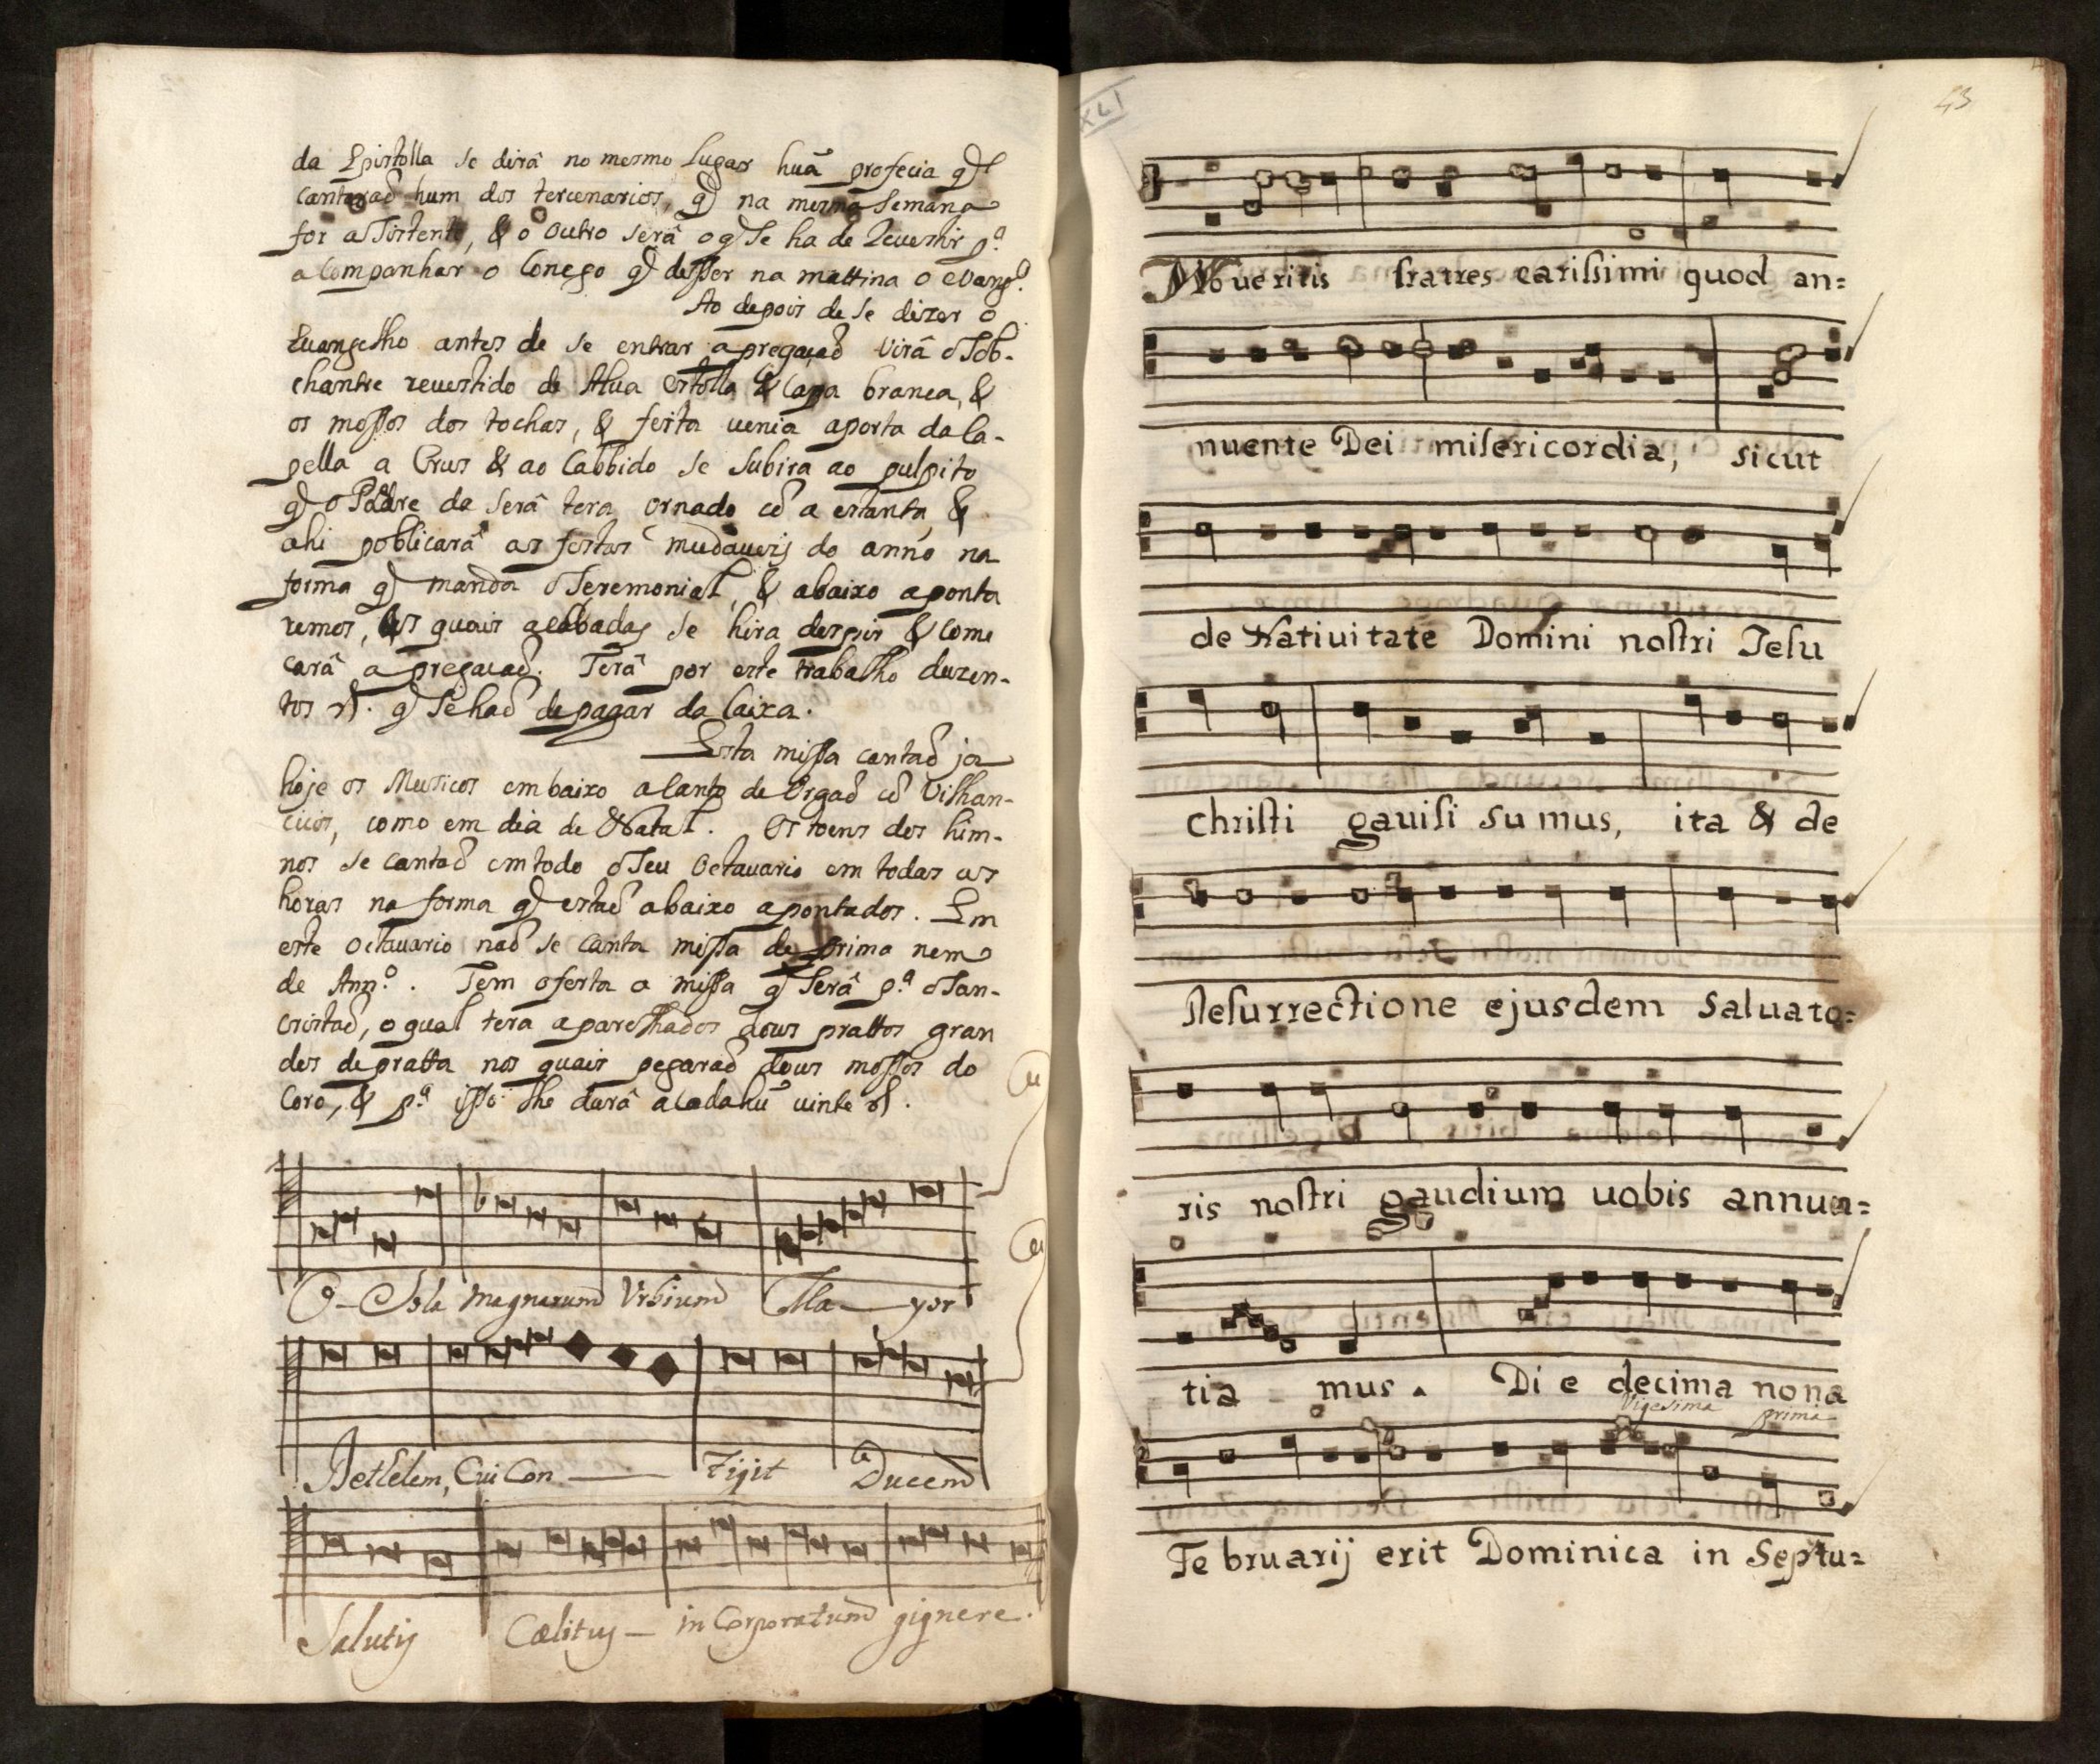 da Epistolla se dirâ no mesmo lugar huã profecia q̃
cantaraõ hum dos tercenarios, q̃ na mesma semana
for aSistente, & o outro serâ o q̃ se ha de Revestir p.ª
acompanhar o Conego q̃ disser na mattina o evang.º
Ao depois de se dizer o
Euangelho antes de se entrar apregaçaõ virâ oSob-
chantre reuestido de Alua estolla & Capa branca, &
os mossos dos tochas, & feita uenia aporta da Ca-
pella a Crus & ao Cabbido se subira ao pulpito
q̃ o Padre da Serâ tera ornado cõ a estanta, &
ahi poblicarâ as festas mudaueis do anno na
forma q̃ manda oSeremonial, & abaixo aponta
remos, as quais acabadas se hira despir & come
carâ a pregacaõ. Terâ por este trabalho duzen-
tos rs. q̃ Se haõ de pagar da Caixa.
Esta missa cantaõ ja
hoje os Musicos embaixo a Canto de Orgaõ cõ Vilhan-
cicos, como em dia de Natal. Os toens dos him-
nos se cantaõ em todo oSeu Octauario em todas as
horas na forma q̃ estaõ abaixo apontados. Em
este octauario naõ se canta missa de prima nem
de Ann.º. Tem oferta a missa q̃ Serâ p.ª oSan-
cristaõ, o qual tera aparelhados dous prattos gran
des de pratta nos quais pegaraõ dous mossos do
Coro, & p.ª isso lhe darâ a Cada hũ uinte rs.
O-Sola magnarum Vrbium Ma-yor
Betlelem, Cui Con- Tigit Ducem
Salutis Cælitus- in Corporatum gignere.
XLI
43
Noueritis fratres carissimi quod an=
nuente Dei misericordia, sicut
de Natiuitate Domini nostri Iesu
christi gauisi sumus, ita & de
Resurrectione ejusdem Saluato=
ris nostri gaudium uobis annun=
tia - mus. Die decima nona
Vigesima prima
Februarij erit Dominica in Septu=